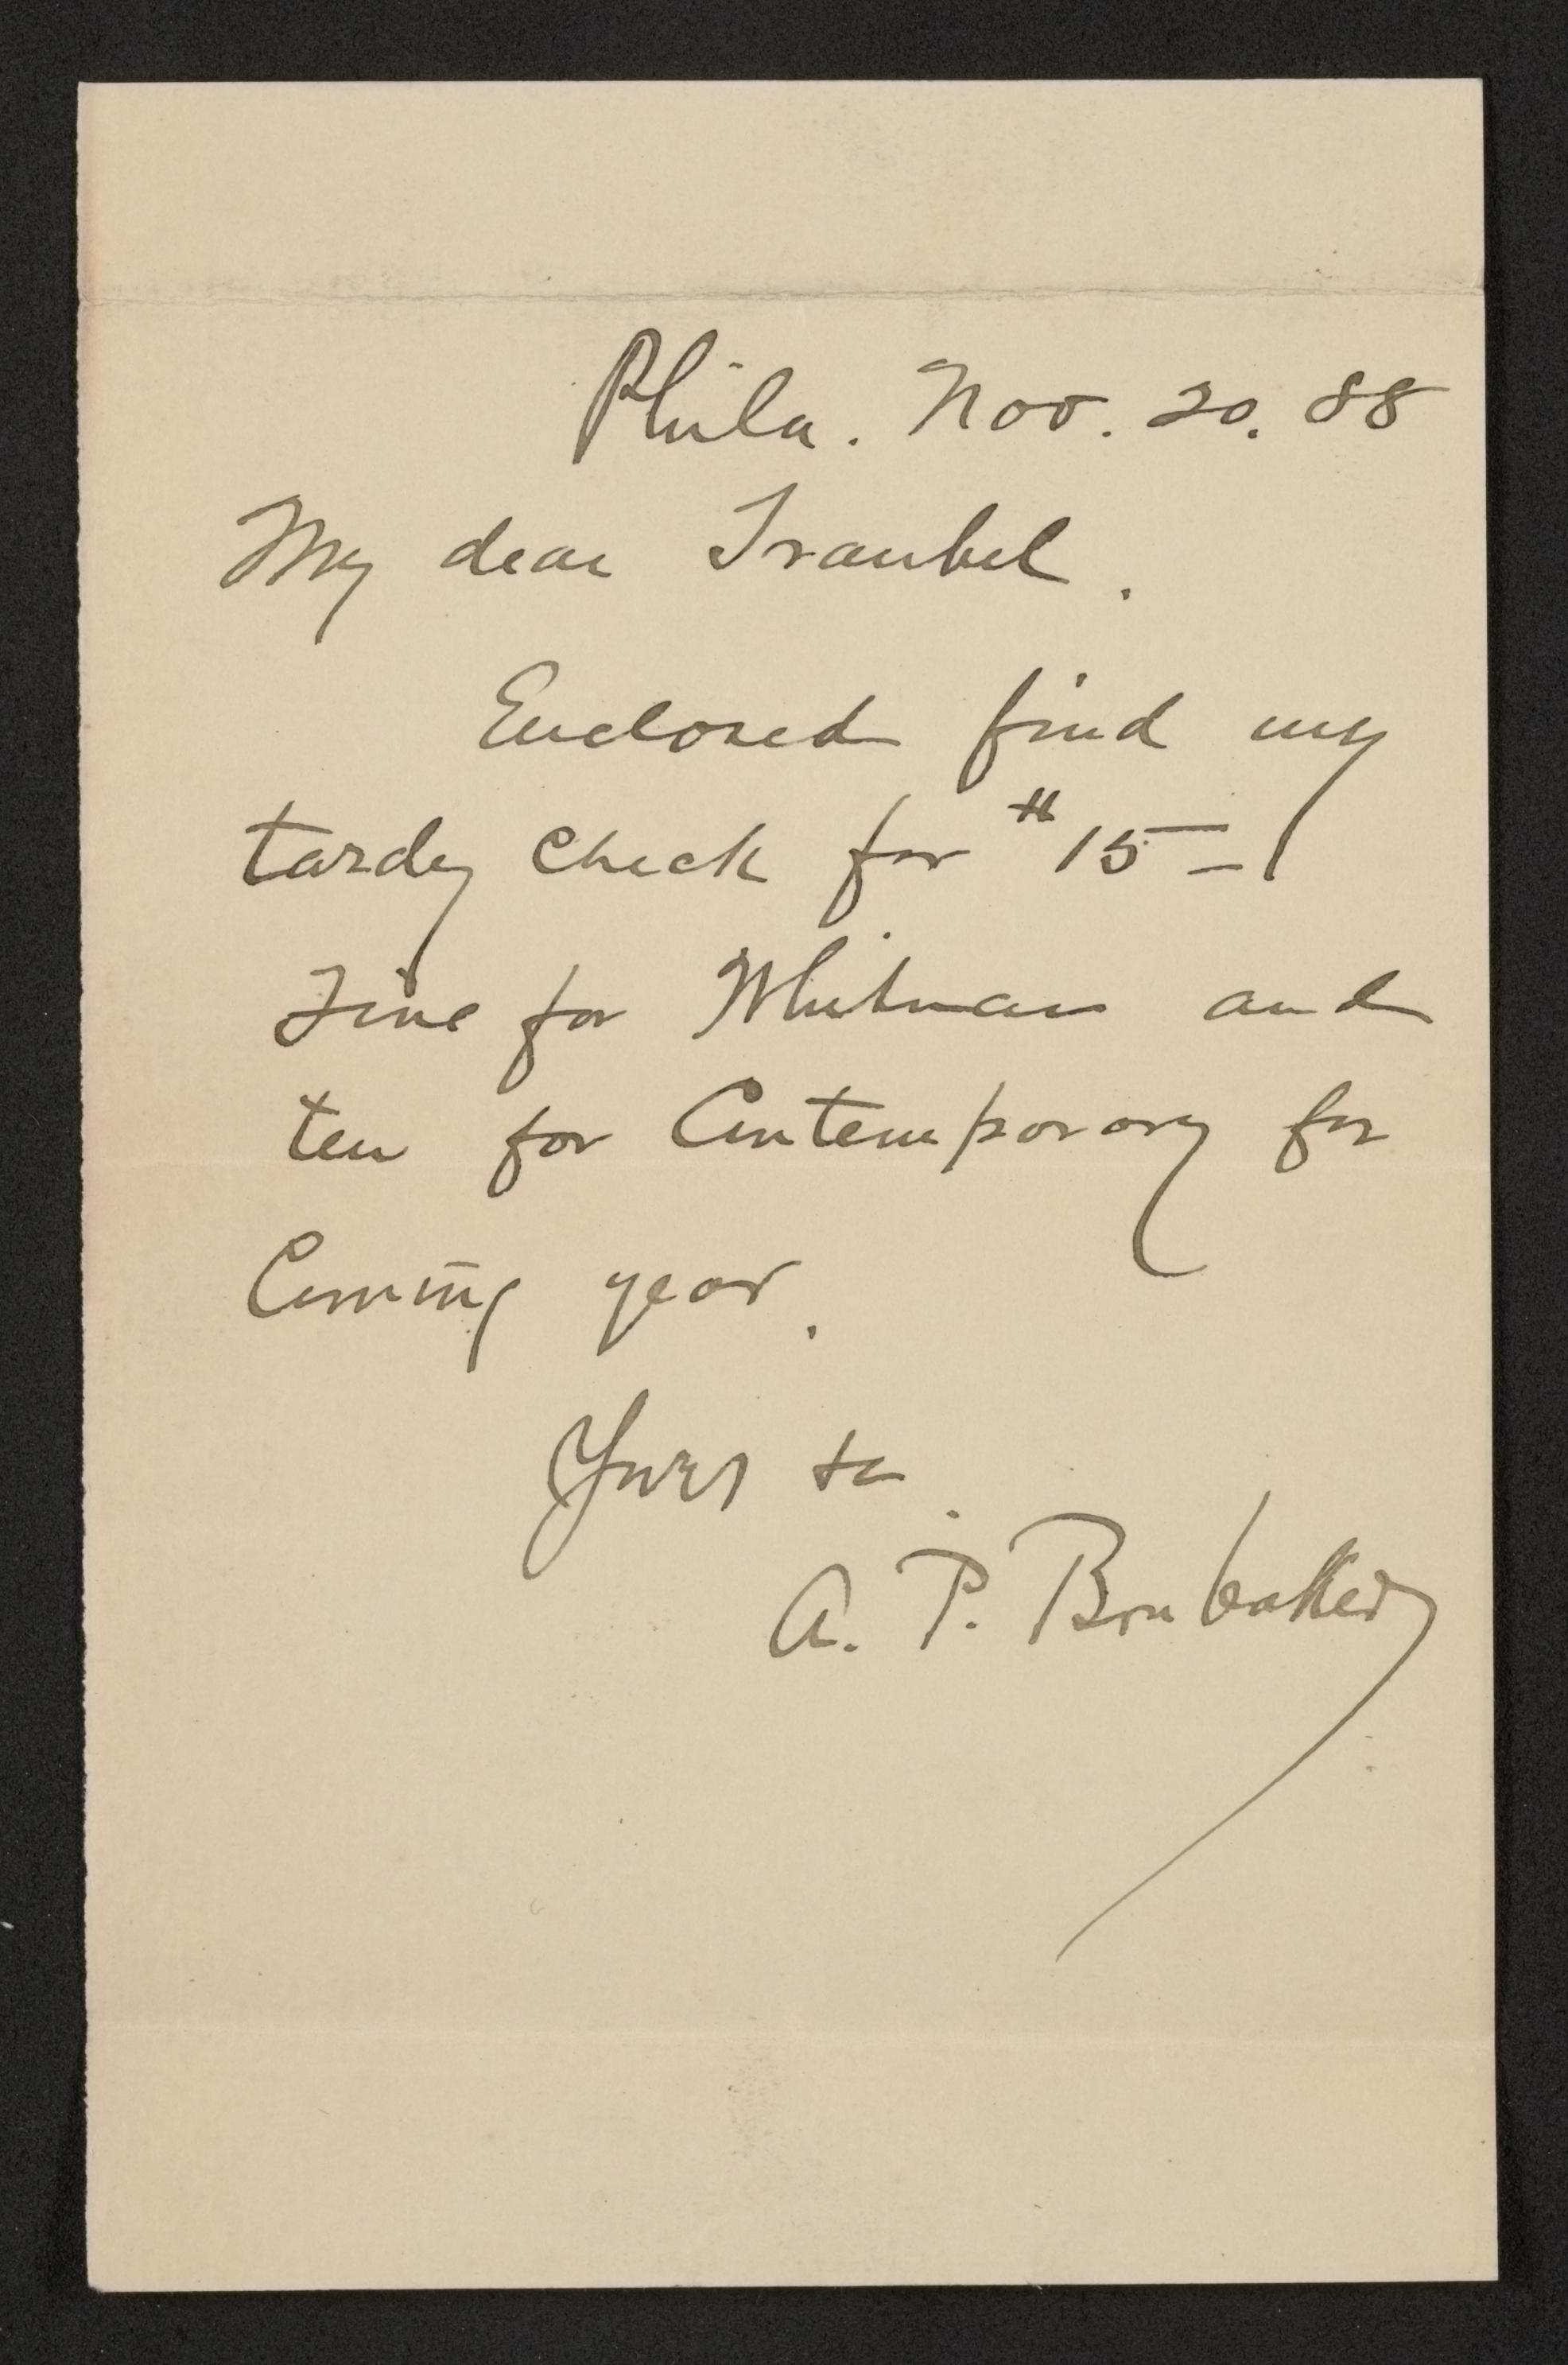 Phila. Nov. 20. 88
My dear Traubel.
Enclosed find my
tardy check for $15 –
Five for Whitman and
ten for Contemporary for
Coming year.
Yours &c.
A. P. Brubaker